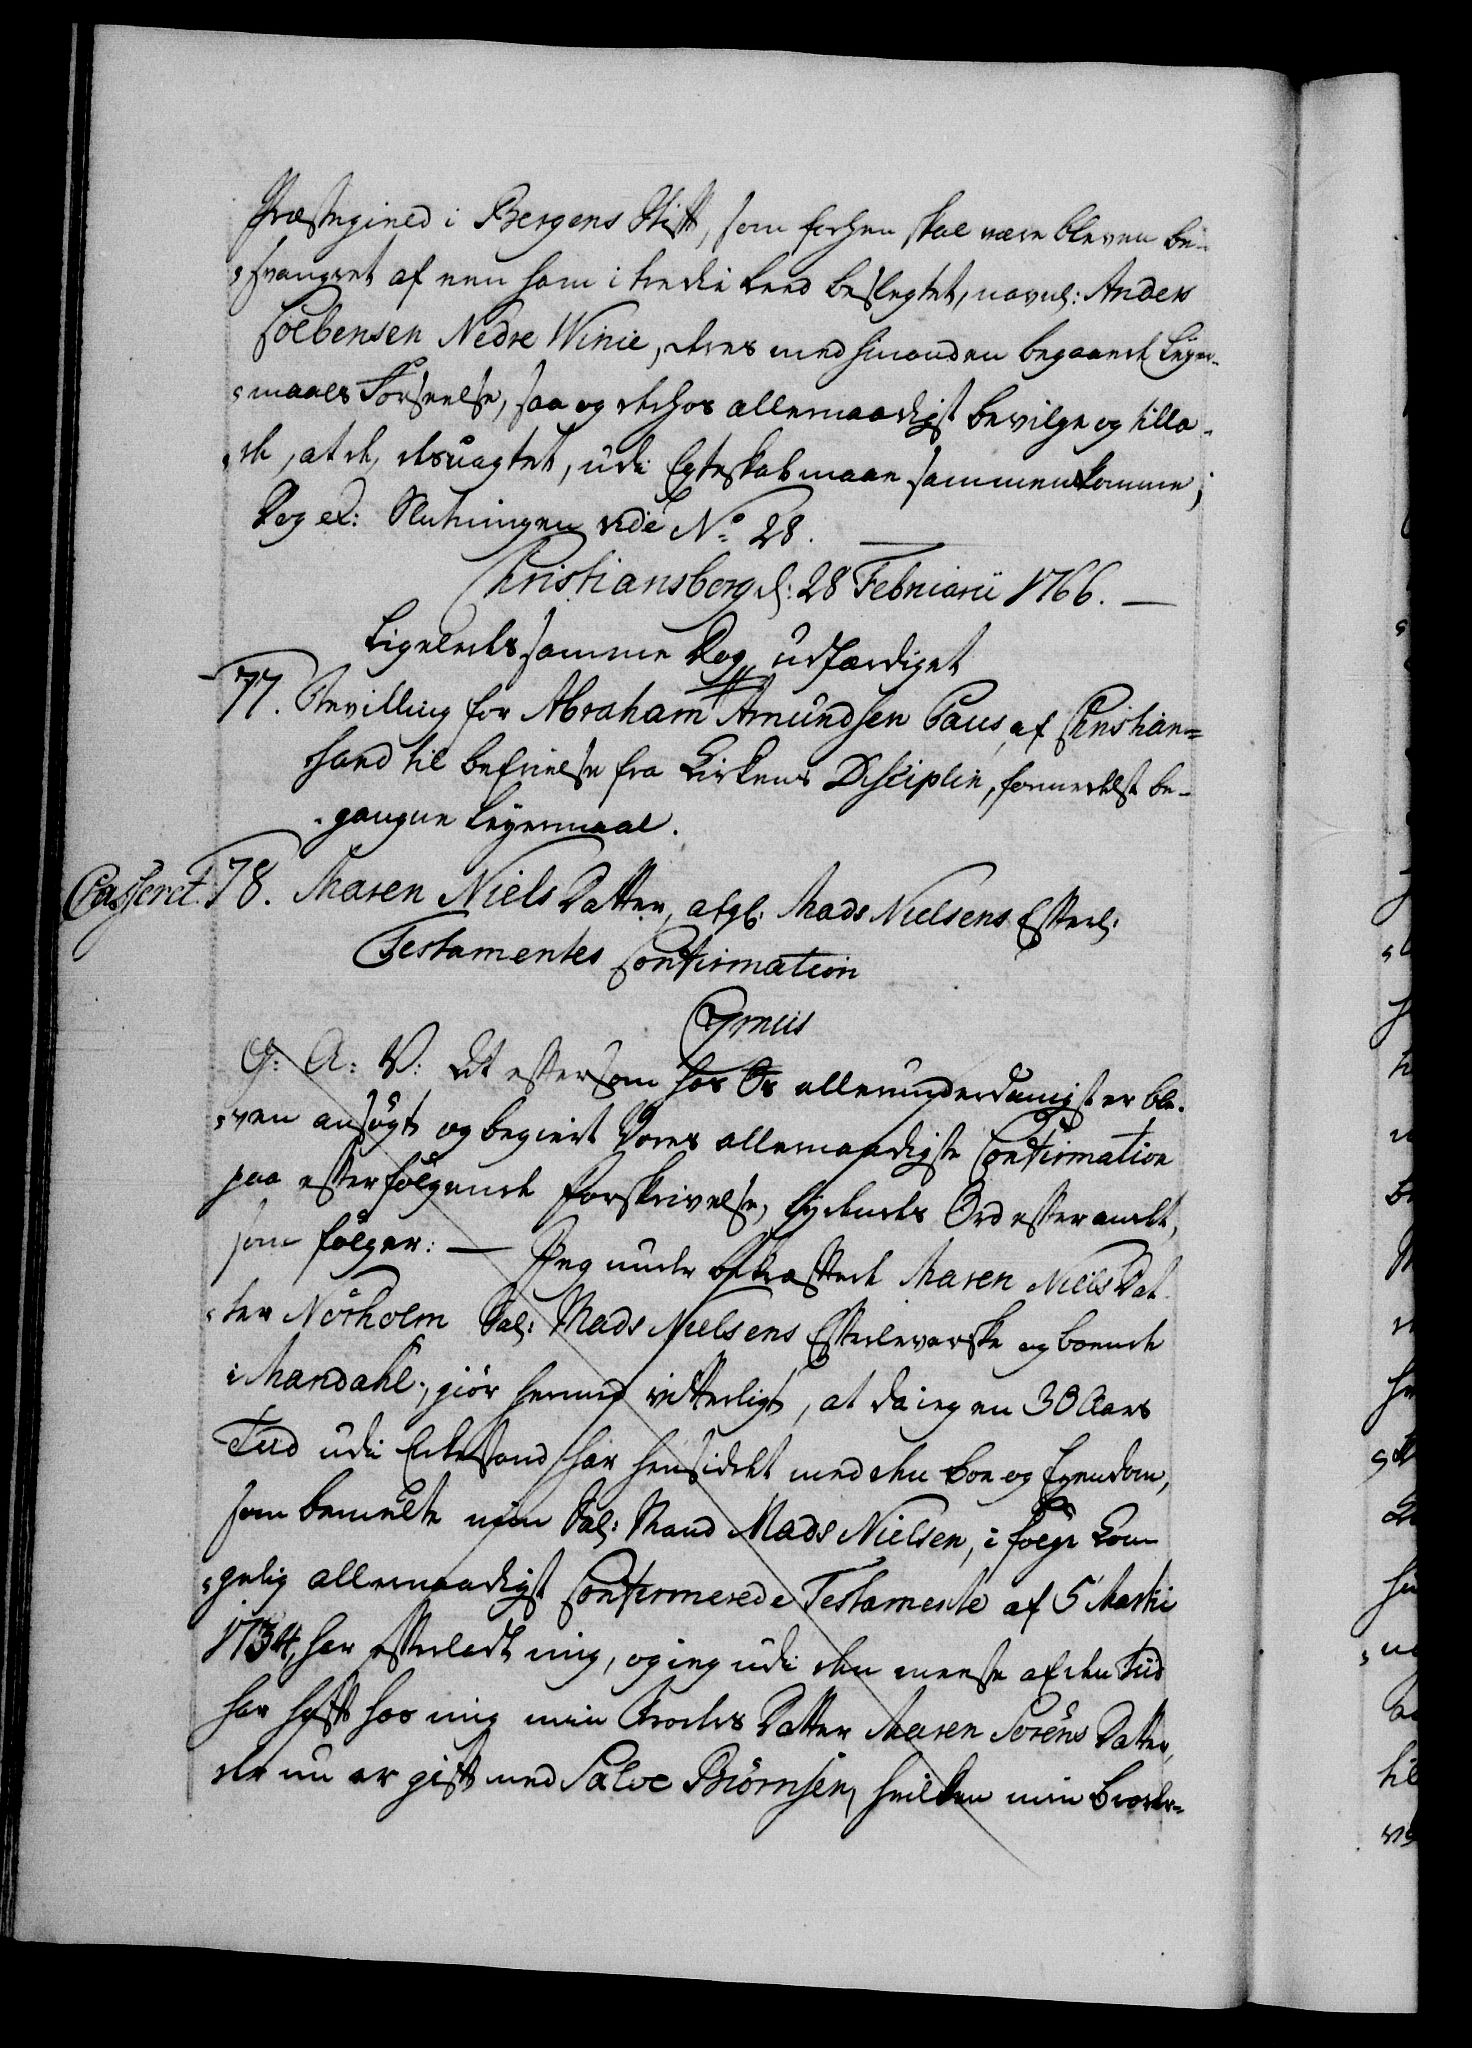 Præstegield i Bergens Stift, som forhen skal være bleven be-
svangret af een ham i tredie Leed beslegtet, navnl: Anders
Colbensen Nedre Winie, deres med hinanden begaaede Leyer-
maals Forseelse, saa og derhos allernaadigst bevilge og tilla-
de, at de, desuagtet, udi Egteskab maae sammenkomme;
Dog &c: Slutningen vide No. 28.
Christiansborg d: 28 Februarii 1766.
Ligeledes samme Dag udfærdiget
77. Bevilling for Abraham Amundsen Paus, af Christian-
sand til befrielse fra Kirkens Disciplin, formedelst be-
gangne Leyermaal.
Casseret. 78. Maren Niels Datter, afg: Mads Nielsens Efterl:
Testamentes Confirmation
Gratis
G: A: V: At eftersom hos Os allerunderdanigst er ble-
ven ansøgt og begiert Vores allernaadigste Confirmation
paa efterfølgende Forskrivelse, lydende Ord efter andet,
som følger: — Jeg underskrevne Maren Niels Dat-
ter Nörholm Sal: Mads Nielsens Efterleverske og boende
i Mandahl, giör hermed vitterligt, at da jeg en 30 Aars
Tiid udi Enkestand har hensiddet med den Boe og Eyendom,
som bemelte min Sal: Mand Mads Nielsen, i følge Kon-
gelig allernaadigst Confirmerede Testamente af 5 Martii
1734, har efterladt mig, og jeg udi den meeste af den Tiid
har haft hos mig min Broders Datter Maren Sörens Datter,
der nu er gift med Salve Biörnsen, hvilken min Broder-